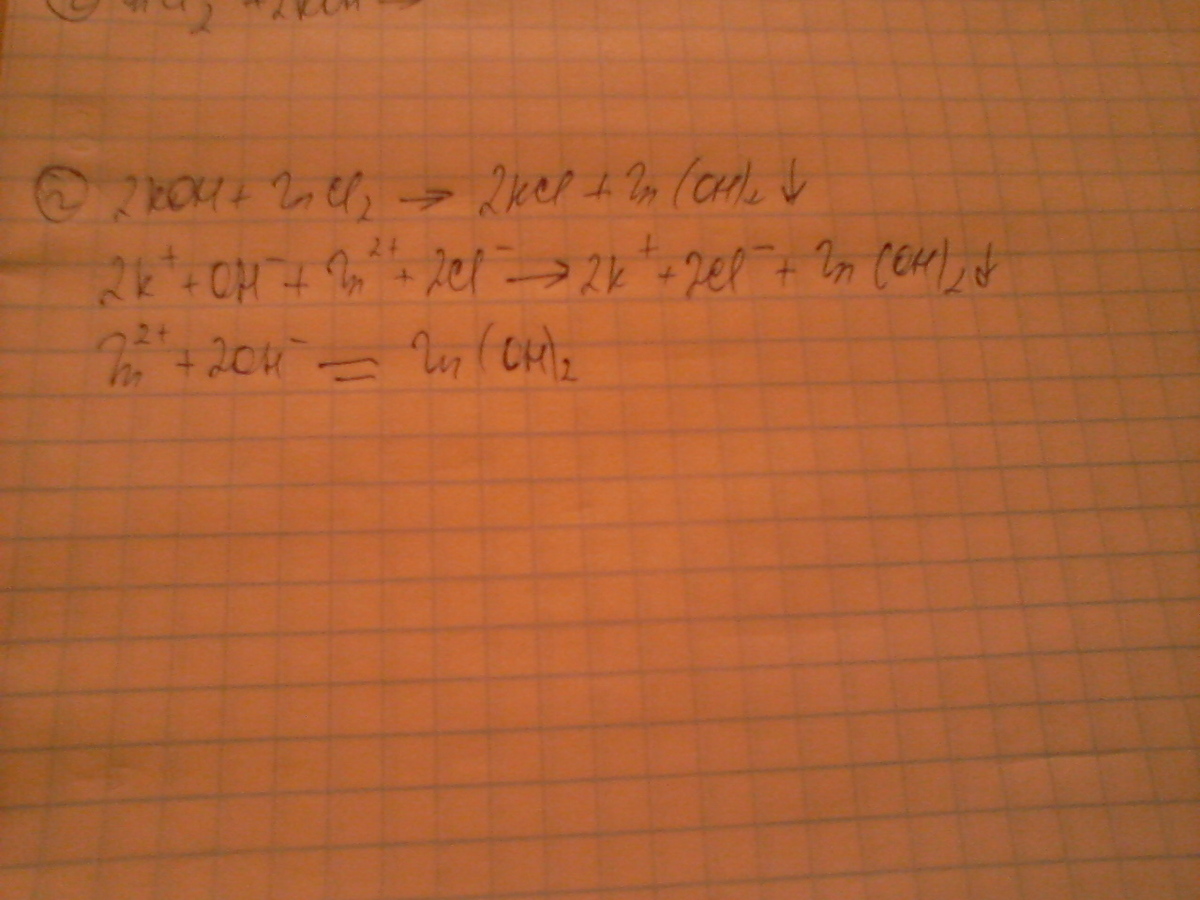 ② 2KOH + ZnCl₂ → 2KCl + Zn(OH)₂↓
2K⁺ + OH⁻ + Zn²⁺ + 2Cl⁻ → 2K⁺ + 2Cl⁻ + Zn(OH)₂↓
Zn²⁺ + 2OH⁻ = Zn(OH)₂